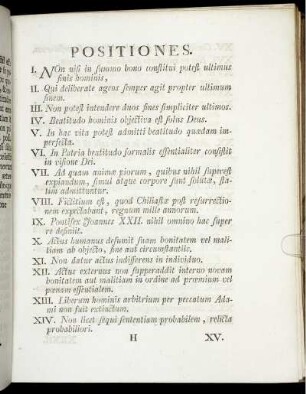 POSITIONES.
I. NOn nisi in summo bono constitui potest ultimus
finis hominis,
II. Qui deliberate agens semper agit propter ultimum
finem.
III. Non potest intendere duos fines simpliciter ultimos.
IV. Beatitudo hominis objectiva est solus Deus.
V. In hac vita potest admitti beatitudo quædam im-
perfecta.
VI. In Patria beatitudo formalis essentialiter consistit
in visione Dei.
VII. Ad quam animæ piorum, quibus nihil superest
expiandum, simul atque corpore sunt solutæ, sta-
tim admittuntur.
VIII. Fictitium est, quod Chiliastæ post resurrectio-
nem expectabant, regnum mille annorum.
IX. Pontifex Joannes XXII. nihil omnino hac super
re definiit.
X. Actus humanus desumit suam bonitatem vel mali-
tiam ab objecto, fine aut circumstantiis.
XI. Non datur actus indifferens in individuo.
XII. Actus externus non superaddit interno novam
bonitatem aut malitiam in ordine ad præmium vel
pœnam essentialem.
XIII. Liberum hominis arbitrium per peccatum Ada-
mi non fuit extinctum.
XIV. Non licet sequi sententiam probabilem, relicta
probabiliori.
H XV.